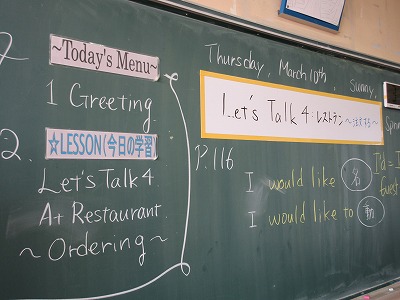 ~Today's Menu~
1 Greeting
2.
☆LESSON(今日の学習)
Let's Talk 4
At Restaurant
~Ordering~
Thursday, March 10th, Sunny,
Let's Talk 4:レストラン~注文する~
P.116
I would like 名
I would like to 動
I'd =